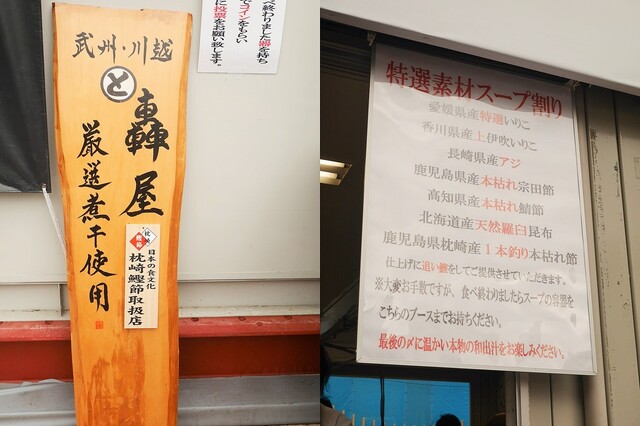 武州・川越
と
轟屋
厳選煮干使用
日本の食文化
枕崎鰹節取扱店
べ終わりました器を持ち
でコインをもらい
に投票をお願い致します。
特選素材スープ割り
愛媛県産特選いりこ
香川県産上伊吹いりこ
長崎県産アジ
鹿児島県産本枯れ宗田節
高知県産本枯れ鯖節
北海道産天然羅臼昆布
鹿児島県枕崎産1本釣り本枯れ節
仕上げに追い鰹をしてご提供させていただきます。
※大変お手数ですが、食べ終わりましたらスープの容器を
こちらのブースまでお持ちください。
最後の〆に温かい本物の和出汁をお楽しみください。